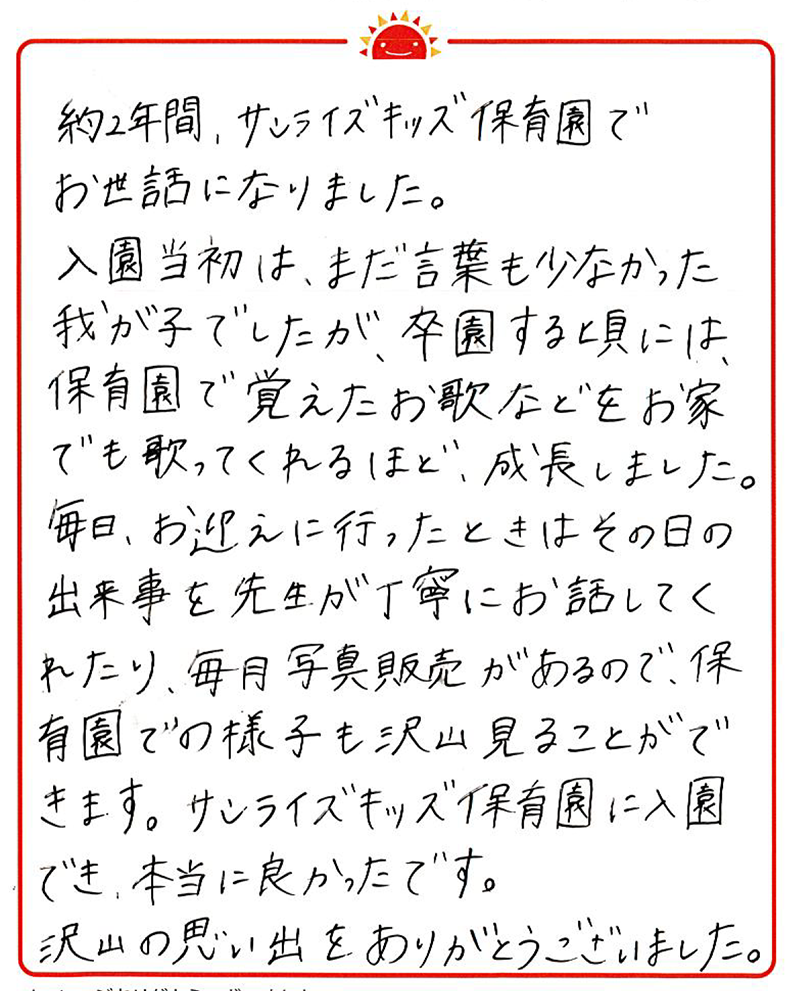 約2年間、サンライズキッズ保育園で
お世話になりました。
入園当初は、まだ言葉も少なかった
我が子でしたが、卒園する頃には、
保育園で覚えたお歌などをお家
でも歌ってくれるほど、成長しました。
毎日、お迎えに行ったときはその日の
出来事を先生が丁寧にお話してく
れたり、毎月写真販売があるので、保
育園での様子も沢山見ることがで
きます。サンライズキッズ保育園に入園
でき、本当に良かったです。
沢山の思い出をありがとうございました。